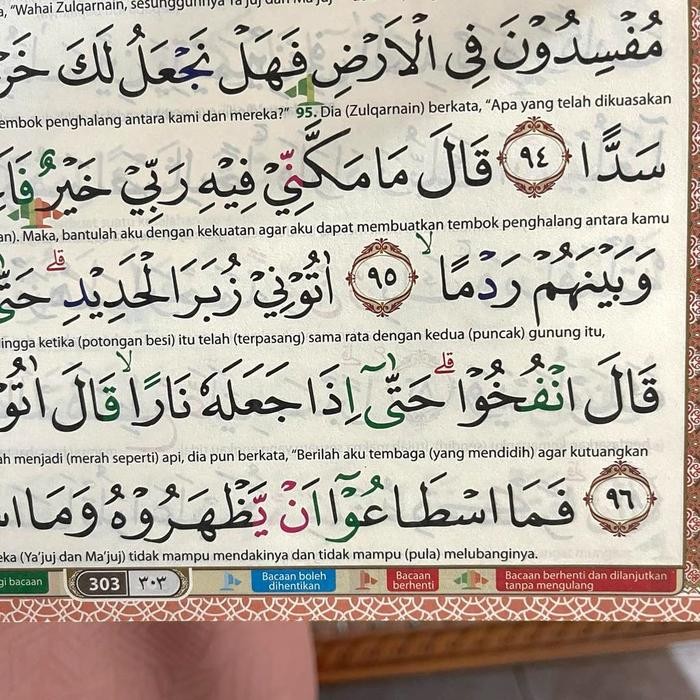 "Wahai Zulqarnain, sesungguhnya Ya'juj dan Ma'juj
مُفْسِدُوْنَ فِى الْاَرْضِ فَهَلْ نَجْعَلُ لَكَ
embok penghalang antara kami dan mereka?" 95. Dia (Zulqarnain) berkata, "Apa yang telah dikuasakan
سَدًّا ٩٤ قَالَ مَا مَكَّنِّيْ فِيْهِ رَبِّيْ خَيْرٌ
an). Maka, bantulah aku dengan kekuatan agar aku dapat membuatkan tembok penghalang antara kamu
وَبَيْنَهُمْ رَدْمًا ۙ ٩٥ اٰتُوْنِيْ زُبَرَ الْحَدِيْدِۗ
ingga ketika (potongan besi) itu telah (terpasang) sama rata dengan kedua (puncak) gunung itu,
قَالَ انْفُخُوْا ۗ حَتّٰىٓ اِذَا جَعَلَهٗ نَارًا ۙ قَالَ
ah menjadi (merah seperti) api, dia pun berkata, "Berilah aku tembaga (yang mendidih) agar kutuangkan
٩٦ فَمَا اسْطَاعُوْٓا اَنْ يَّظْهَرُوْهُ وَمَا
eka (Ya'juj dan Ma'juj) tidak mampu mendakinya dan tidak mampu (pula) melubanginya.
gi bacaan 303 ٣٠٣ Bacaan boleh dihentikan Bacaan berhenti Bacaan berhenti dan dilanjutkan tanpa mengulang